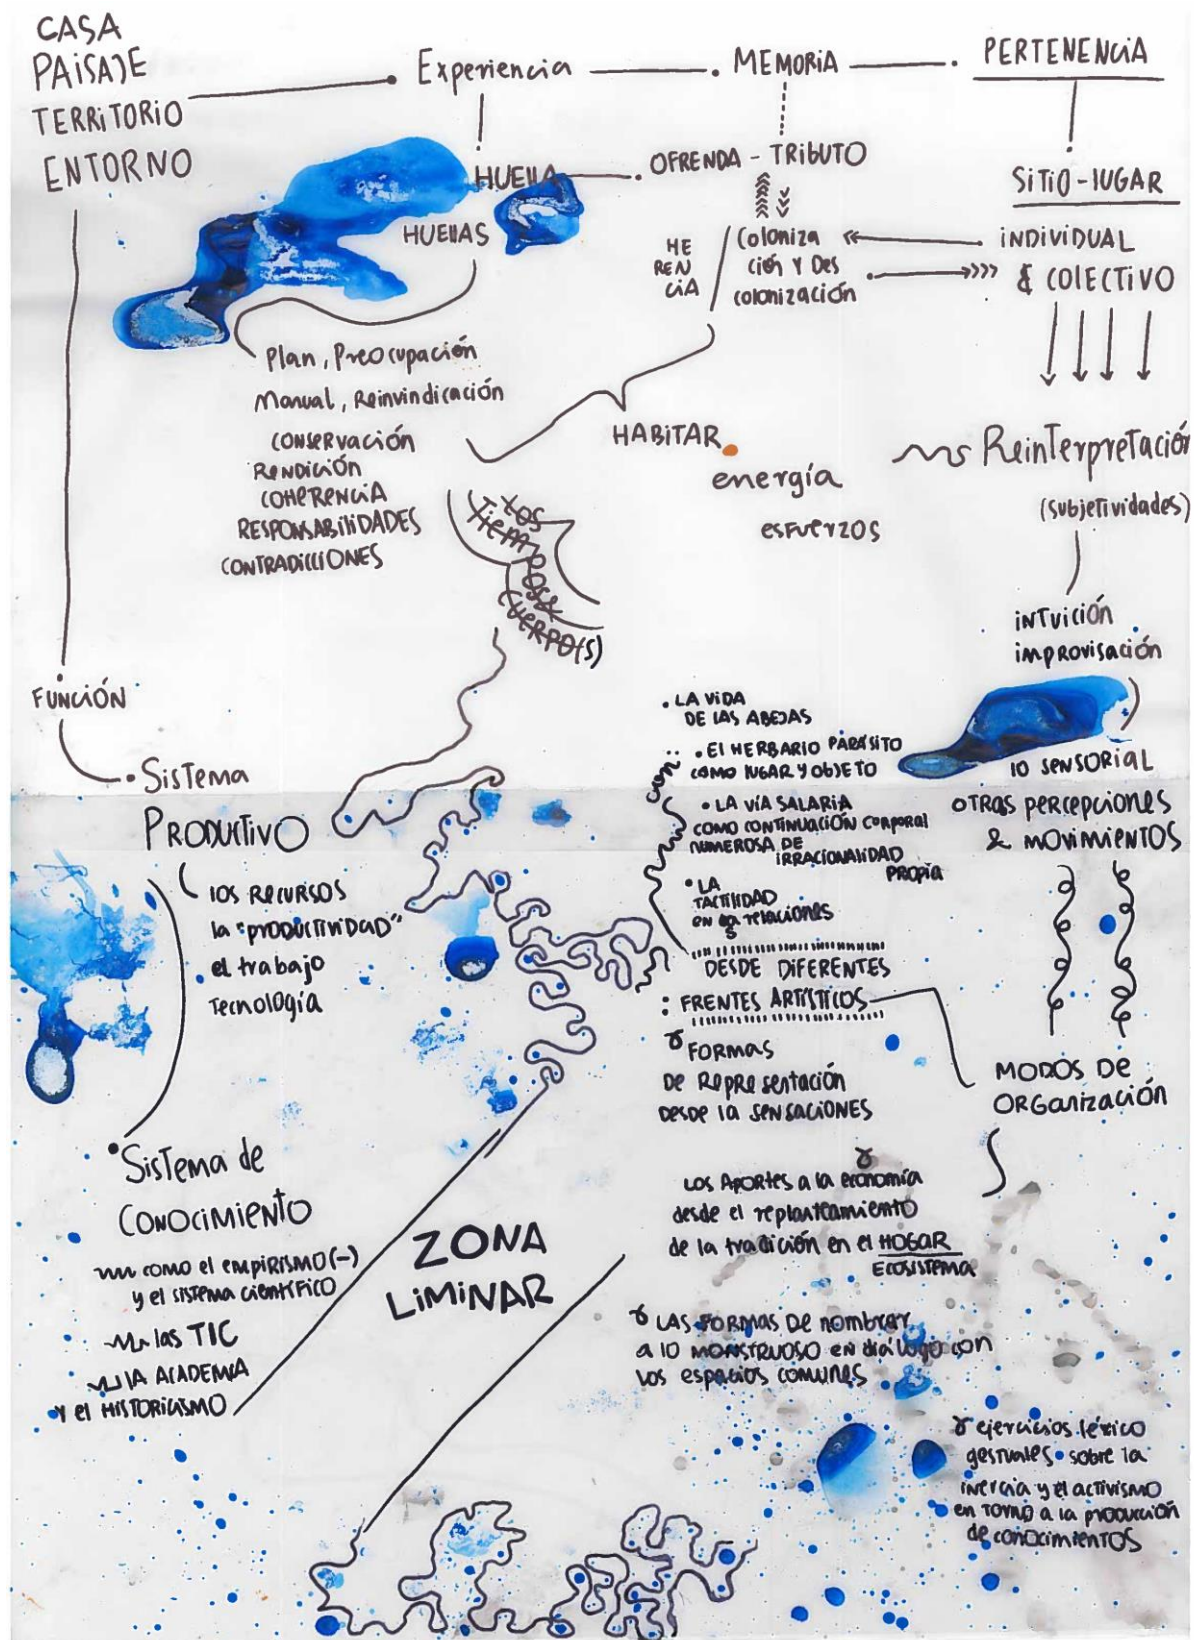 CASA
PAISAJE
TERRITORIO
ENTORNO
Experiencia
MEMORIA
PERTENENCIA
HUELLA
OFRENDA - TRIBUTO
SITIO-LUGAR
HUELLAS
HE
REN
CIA
Coloniza
ción Y Des
colonización
INDIVIDUAL
& COLECTIVO
Plan, Preocupación
Manual, Reinvindicación
CONSERVACIÓN
RENDICIÓN
COHERENCIA
RESPONSABILIDADES
CONTRADICCIONES
HABITAR
energía
esfuerzos
Reinterpretación
(subjetividades)
LOS
Tiempos &
CUERPO(S)
INTUICIÓN
improvisación
FUNCIÓN
Sistema
PRODUCTIVO
LOS RECURSOS
la "PRODUCTIVIDAD"
el trabajo
Tecnología
con:
. LA VIDA
DE LAS ABEJAS
. El HERBARIO PARÁSITO
COMO LUGAR Y OBJETO
. LA VÍA SALARIA
COMO CONTINUACIÓN CORPORAL
NUMEROSA DE
IRRACIONALIDAD
PROPIA
. LA
TACTILIDAD
en las relaciones
DESDE DIFERENTES
: FRENTES ARTÍSTICOS
FORMAS
DE Representación
desde la SENSACIONES
LO SENSORIAL
OTRAS percepciones
& MOVIMIENTOS
MODOS DE
ORGANIZACIÓN
Sistema de
CONOCIMIENTO
como el EMPIRISMO (-)
y el SISTEMA CIENTÍFICO
las TIC
LA ACADEMIA
Y el HISTORICISMO
ZONA
LIMINAR
LOS APORTES a la economía
desde el replanteamiento
de la tradición en el HOGAR
ECOSISTEMA
LAS FORMAS DE nombrar
a LO MONSTRUOSO en diálogo con
los espacios COMUNES
ejercicios léxico
gestuales sobre la
inercia y el activismo
en TORNO a la producción
de conocimientos